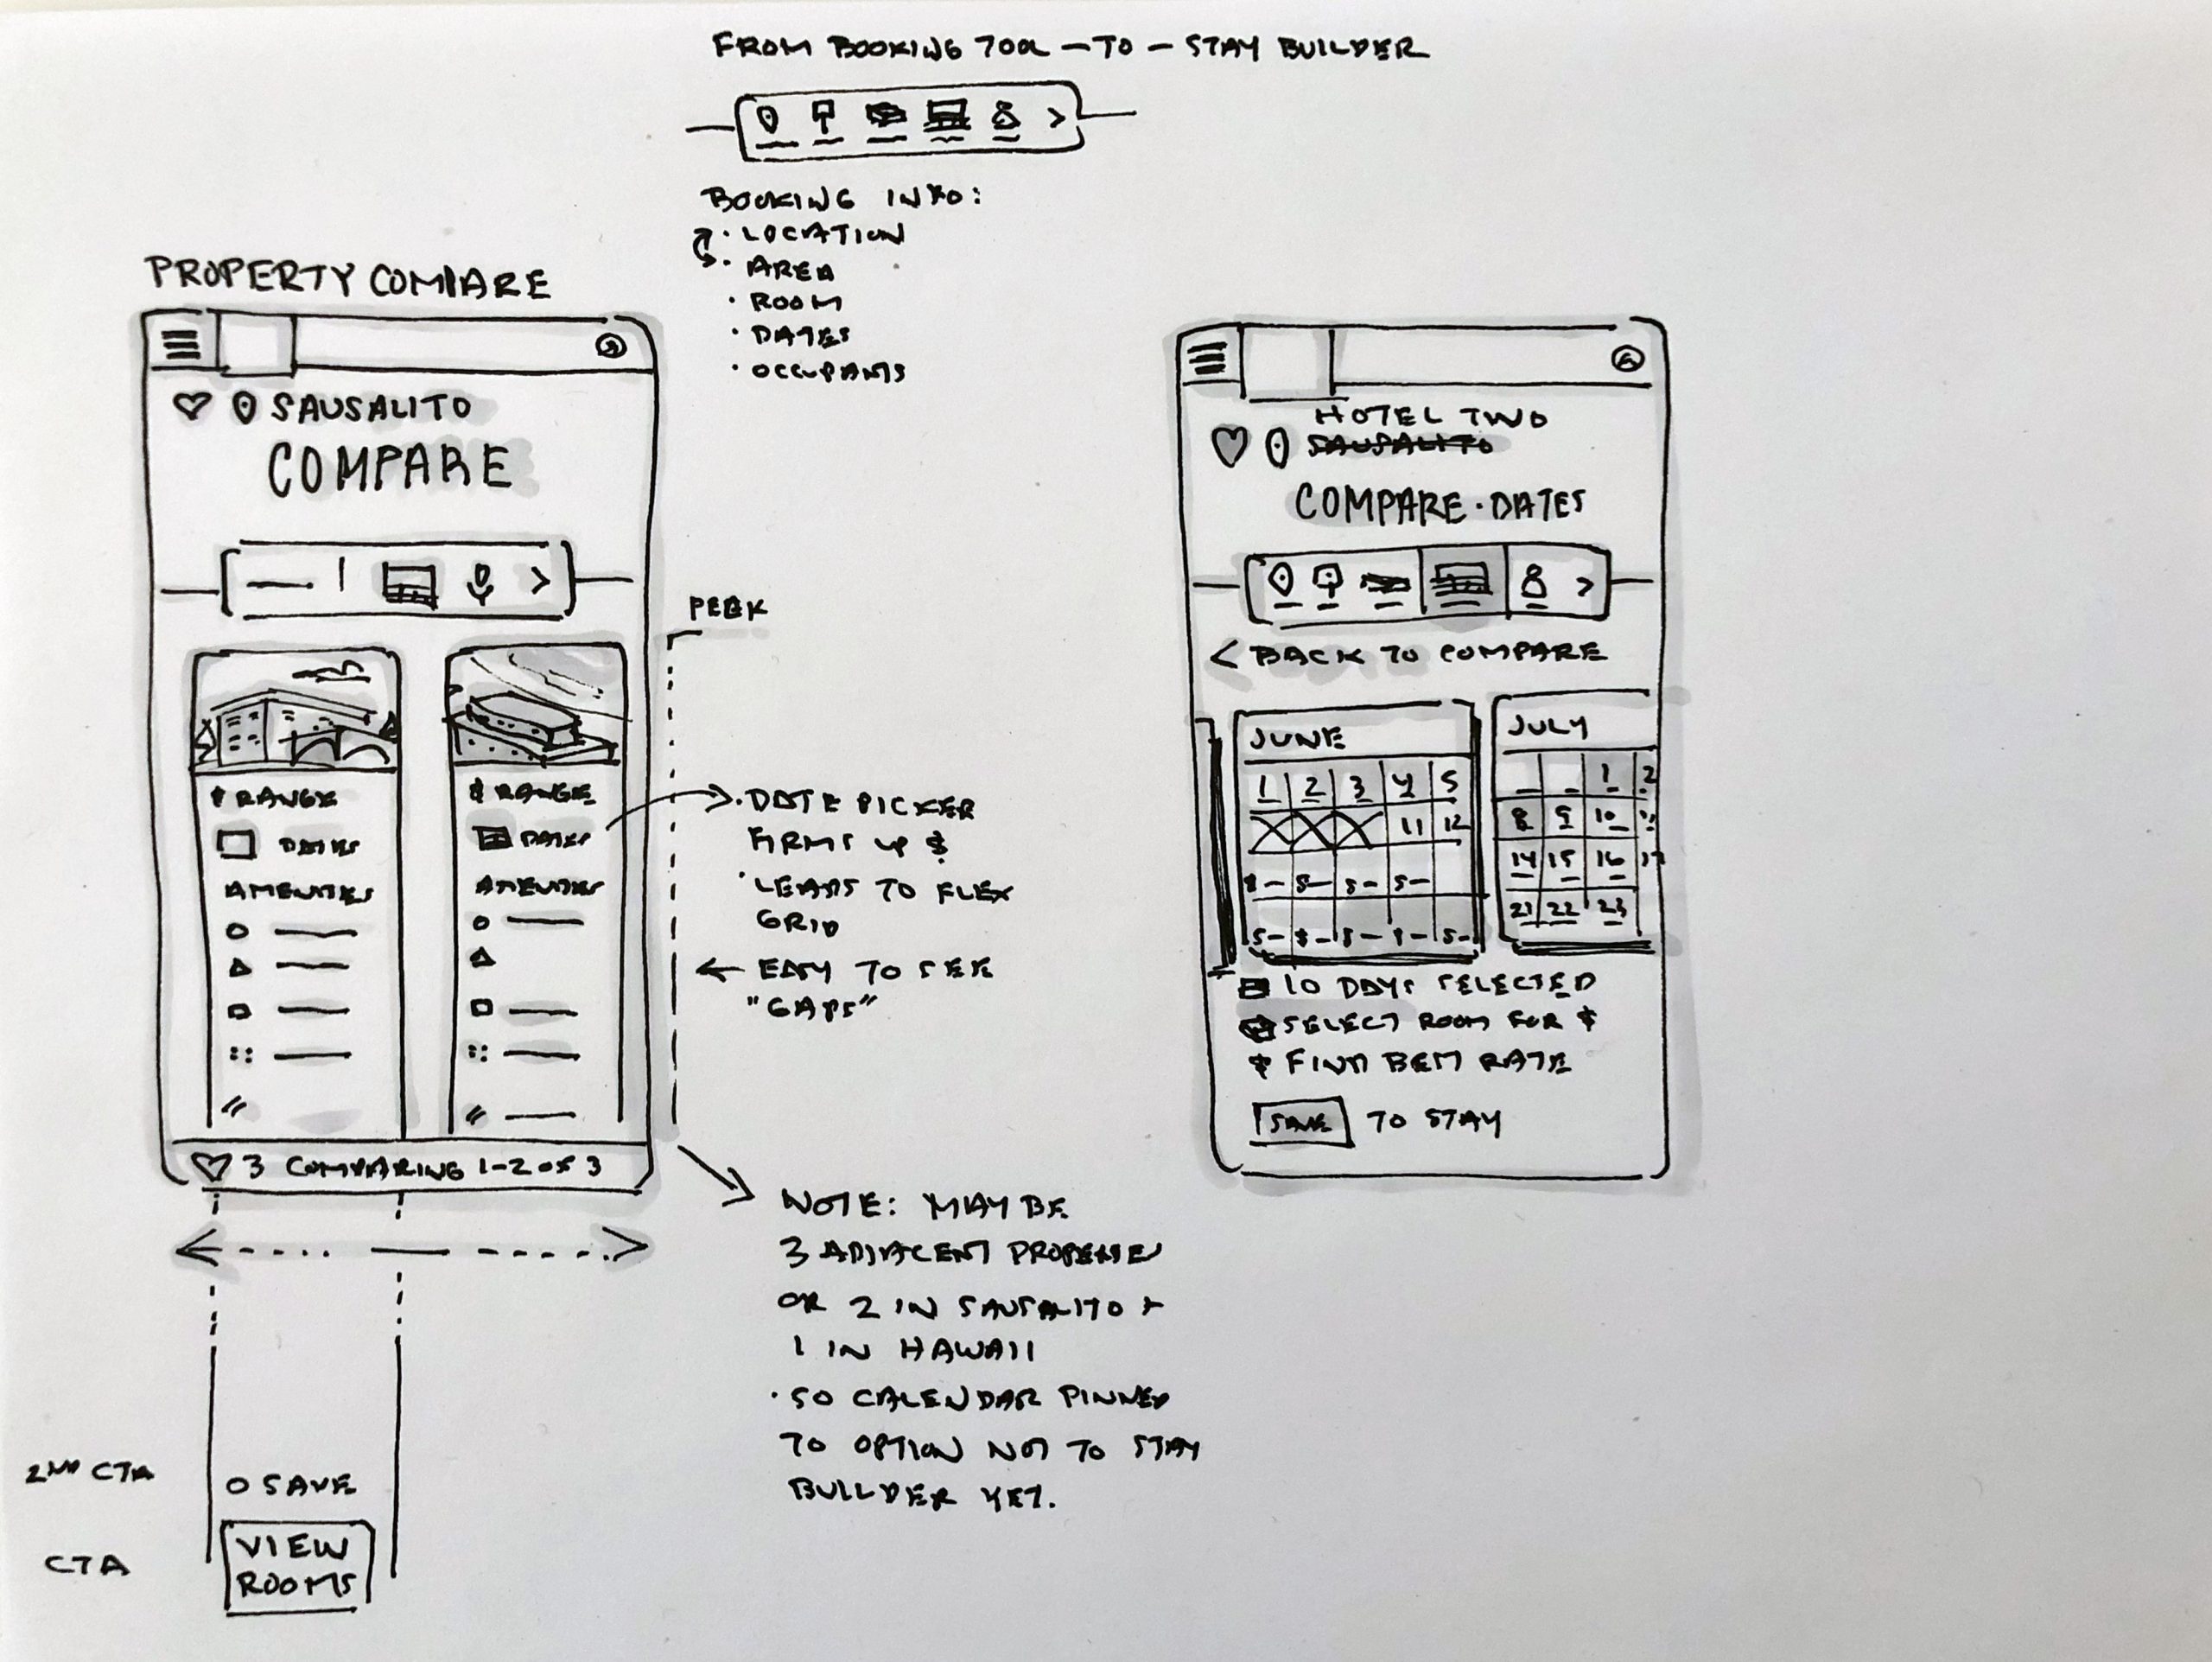 FROM BOOKING TOOL — TO — STAY BUILDER
BOOKING INFO:
· LOCATION
· AREA
· ROOM
· DATES
· OCCUPANTS
PROPERTY COMPARE
SAUSALITO
COMPARE
$ RANGE
DATES
AMENITIES
$ RANGE
DATES
AMENITIES
3 COMPARING 1-2 OF 3
2ND CTA
O SAVE
CTA
VIEW
ROOMS
PEEK
· DATE PICKER
FIRMS UP $
· LEADS TO FLEX
GRID
← EASY TO SEE
"GAPS"
NOTE: MAYBE
3 ADJACENT PROPERTIES
OR 2 IN SAUSALITO +
1 IN HAWAII
· SO CALENDAR PINNED
TO OPTION NOT TO STAY
BUILDER YET.
HOTEL TWO
SAUSALITO
COMPARE · DATES
< BACK TO COMPARE
JUNE
1 2 3 4 5
11 12
$– $– $– $–
$– $– $– $– $–
JULY
1 2
8 9 10 11
14 15 16 17
21 22 23
10 DAYS SELECTED
SELECT ROOM FOR $
$ FIND BEST RATE
SAVE TO STAY